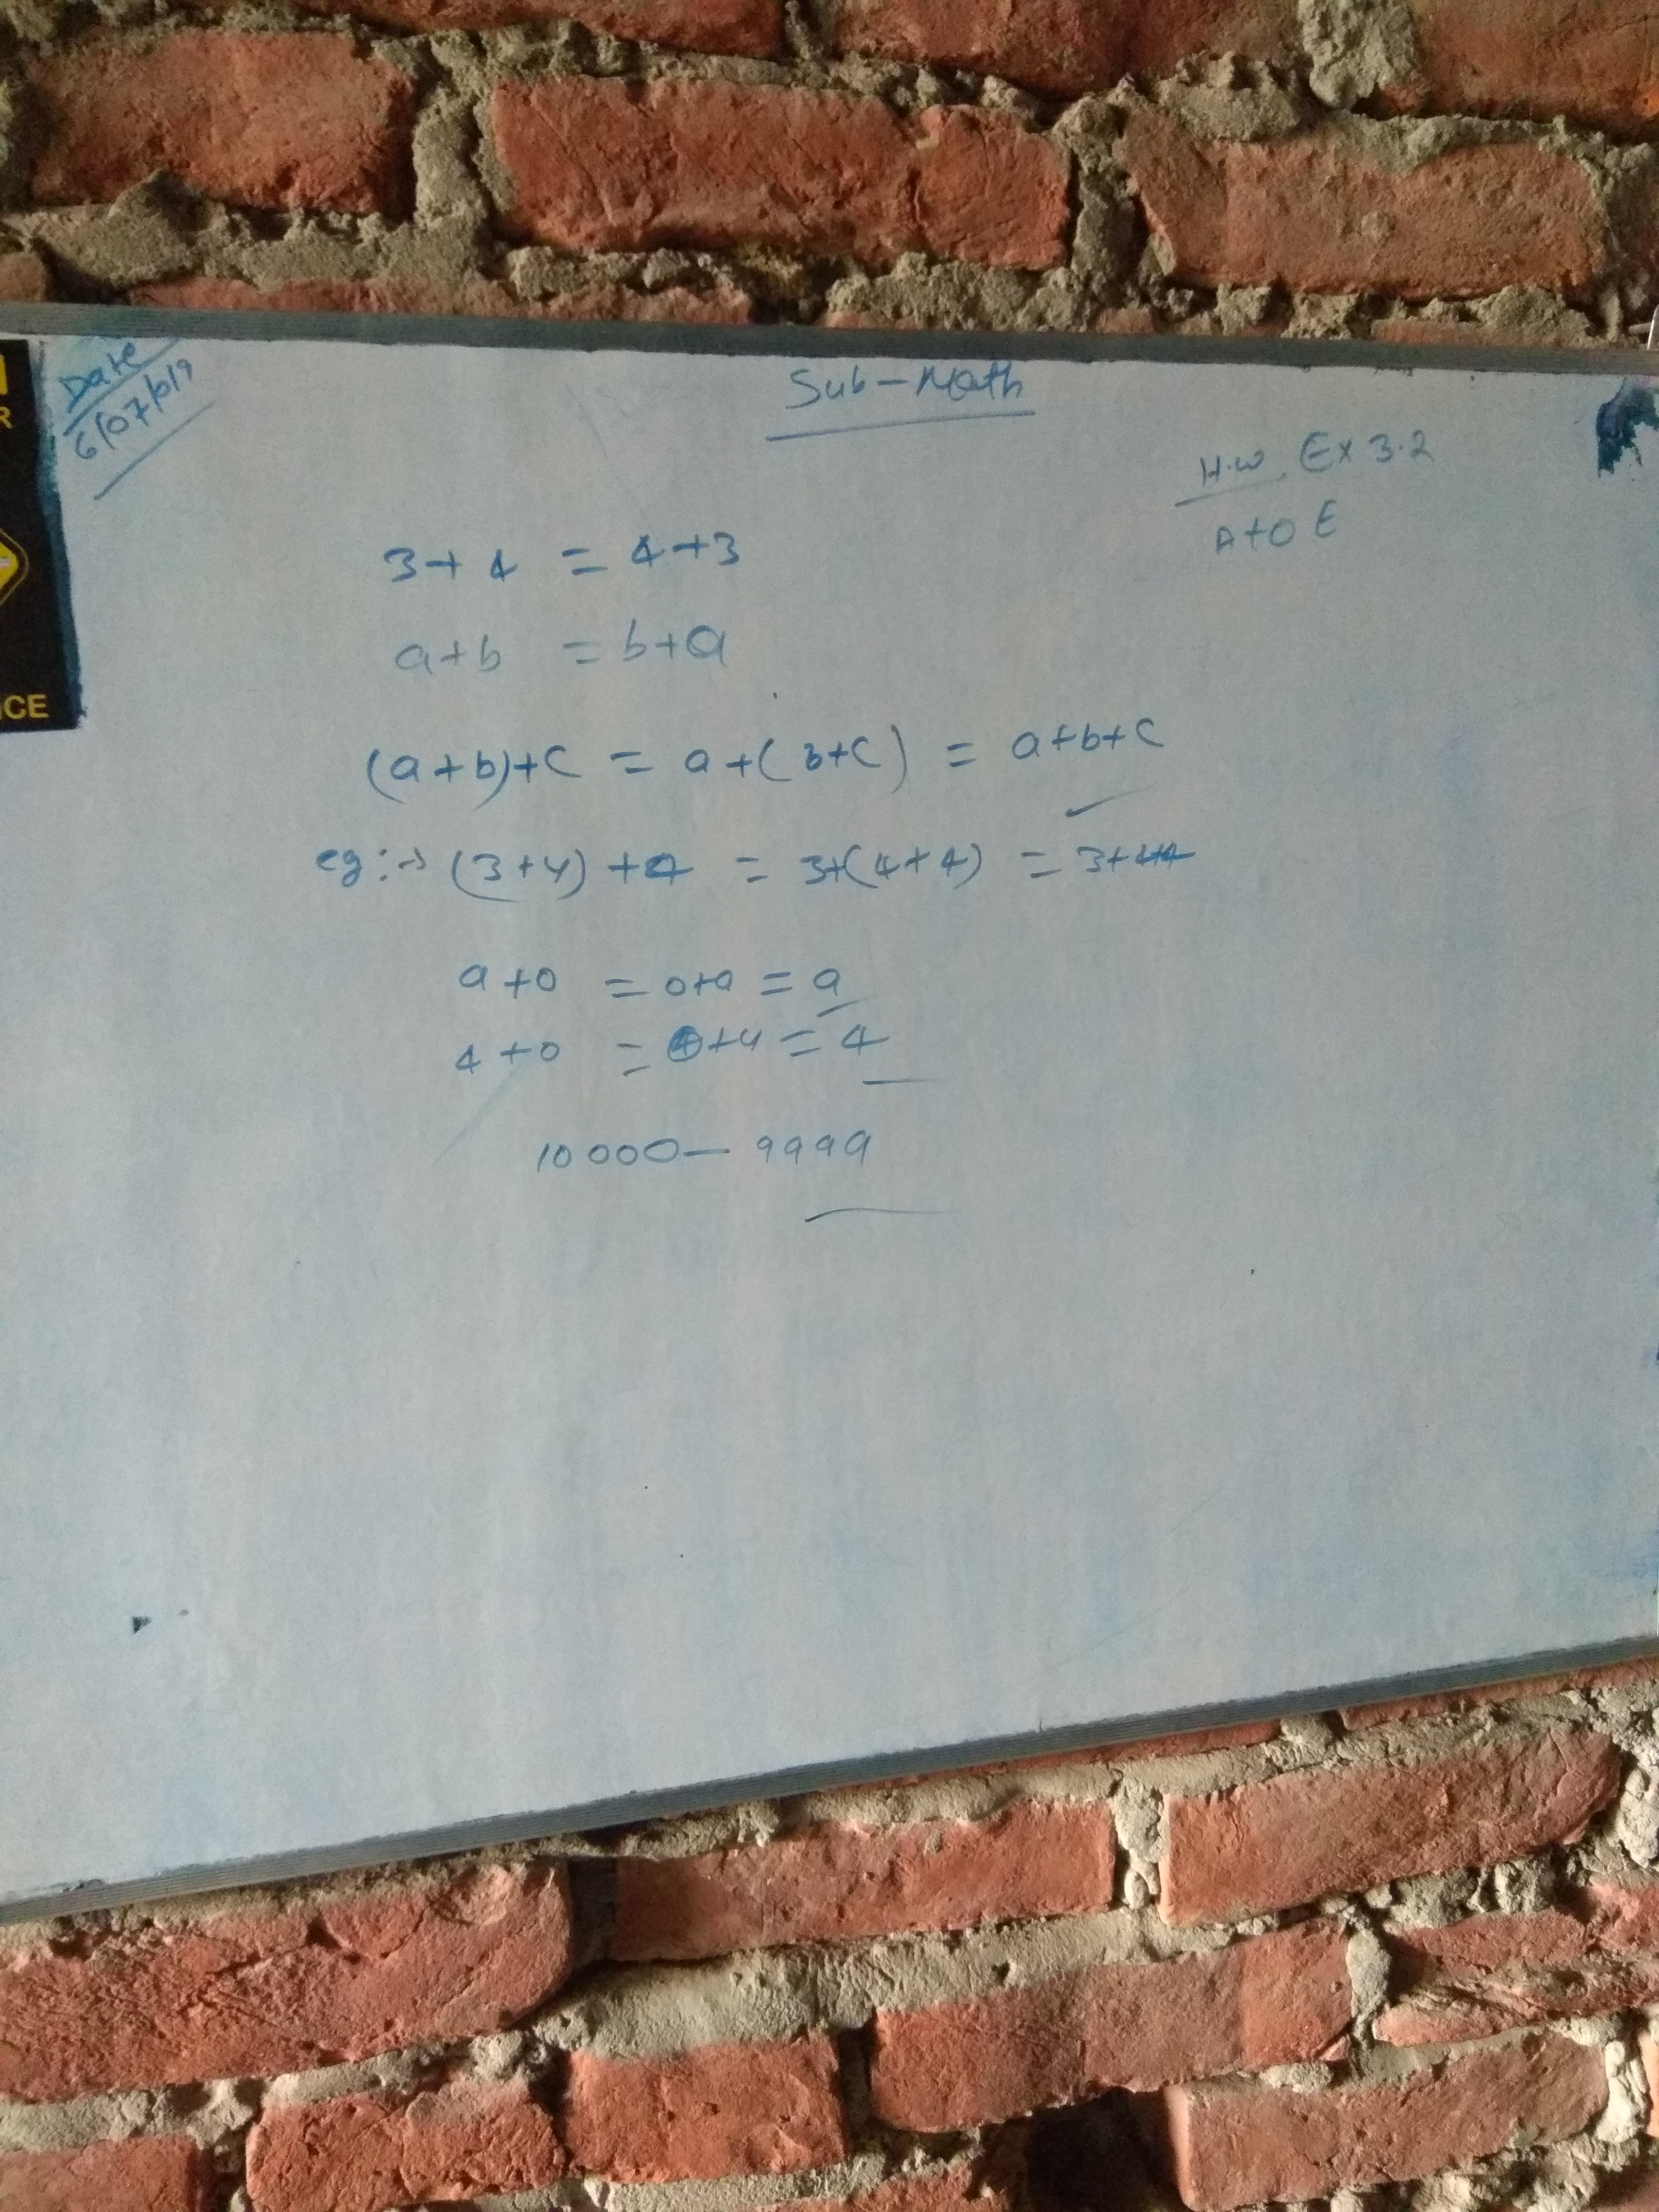 Date
6/07/019
Sub-Math
H.W. Ex 3.2
A to E
3+4 = 4+3
a+b = b+a
(a+b)+c = a+(b+c) = a+b+c
eg:→ (3+4)+4 = 3+(4+4) = 3+4+4
a+0 = 0+a = a
4+0 = 0+4 = 4
10000-9999
R
ICE